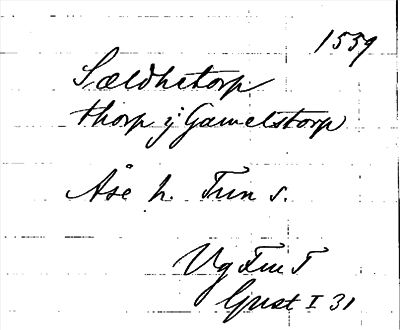 1539
Sældhetorp
thorp j Gamelstorp
Åse h. Fun s.
Vg Fru T
Gust I 31